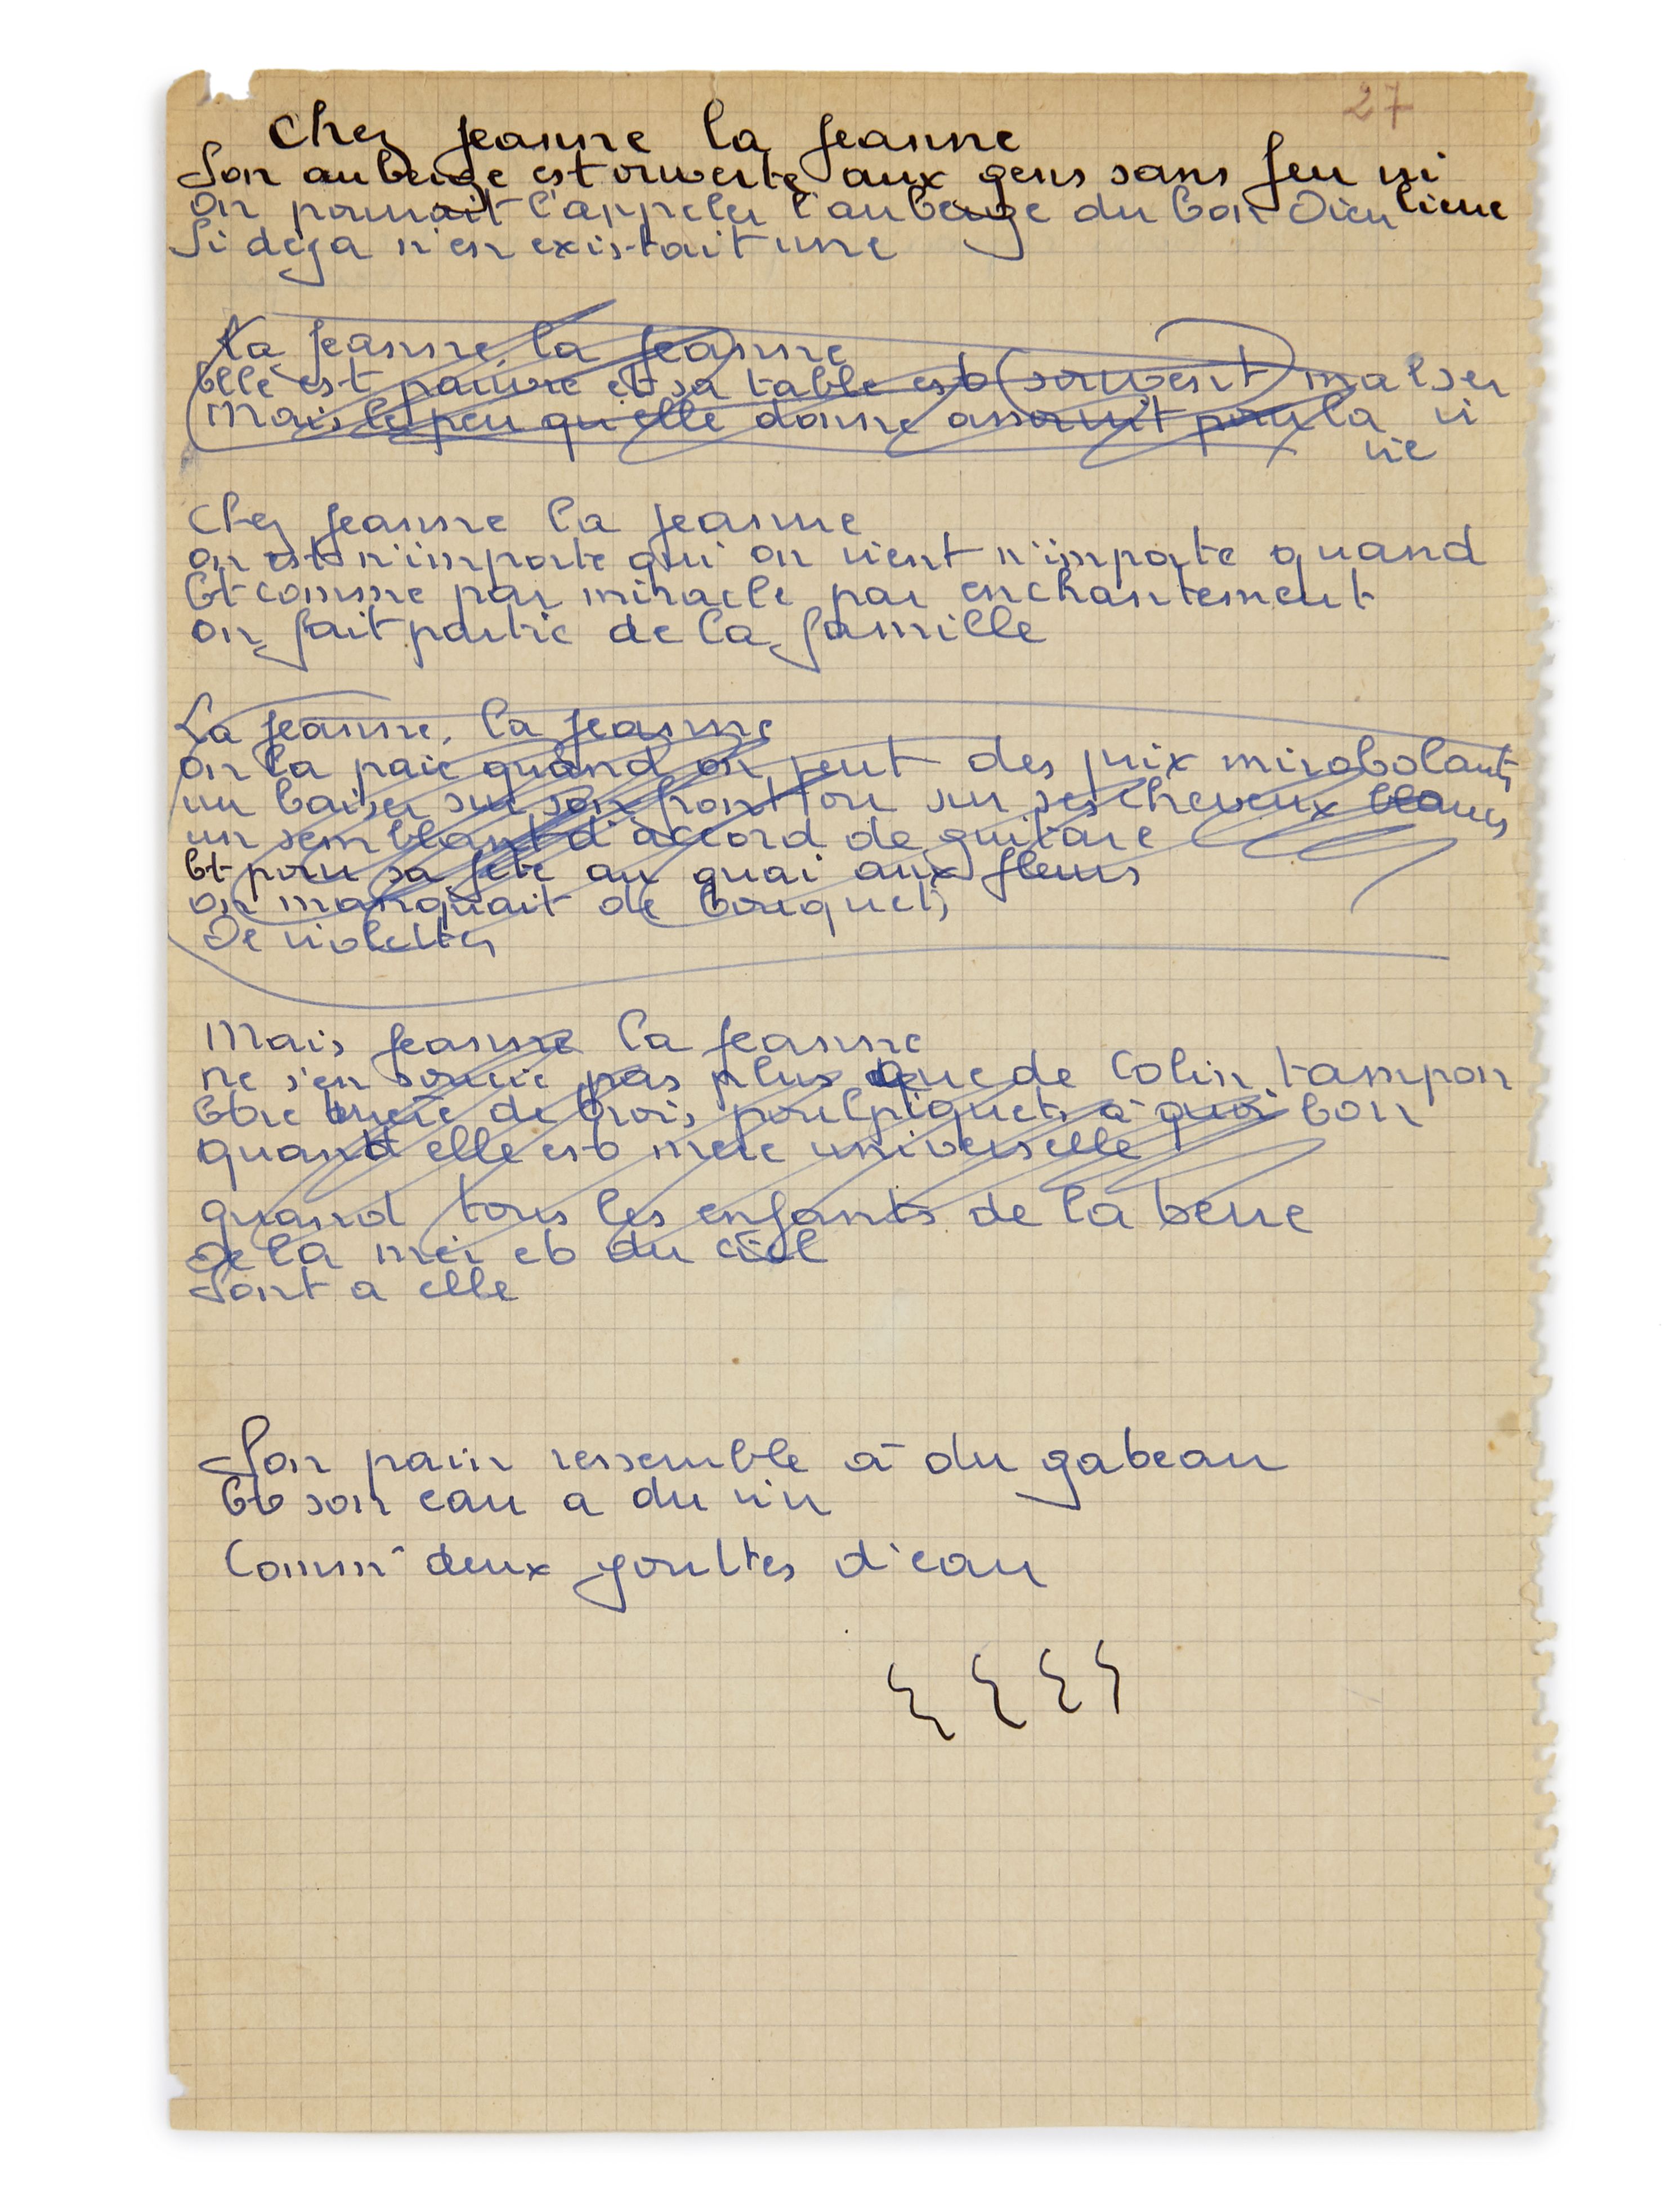 27
Chez Jeanne la Jeanne
Son auberge est ouverte aux gens sans feu ni lieu
On pourrait l'appeler l'auberge du bon Dieu
Si déjà n'en existait une
La Jeanne, la Jeanne
Elle est pauvre et sa table est souvent mal ser
Mais le peu qu'elle donne assouvit pour la vi
vie
Chez Jeanne la Jeanne
On est n'importe qui on vient n'importe quand
Et comme par miracle par enchantement
On fait partie de la famille
La Jeanne, la Jeanne
On la paie quand on peut des prix mirobolants
un baiser sur son front ou sur ses cheveux blancs
un semblant d'accord de guitare
Et pour sa fête au quai aux fleurs
on manquait de bouquets
De violettes
Mais Jeanne la Jeanne
ne s'en soucie pas plus que de Colin tampon
Etre mère de trois poulpiquets à quoi bon
quand elle est mère universelle
quand tous les enfants de la terre
De la mer et du ciel
Sont a elle
Son pain ressemble à du gateau
Et son eau a du vin
Comm' deux gouttes d'eau